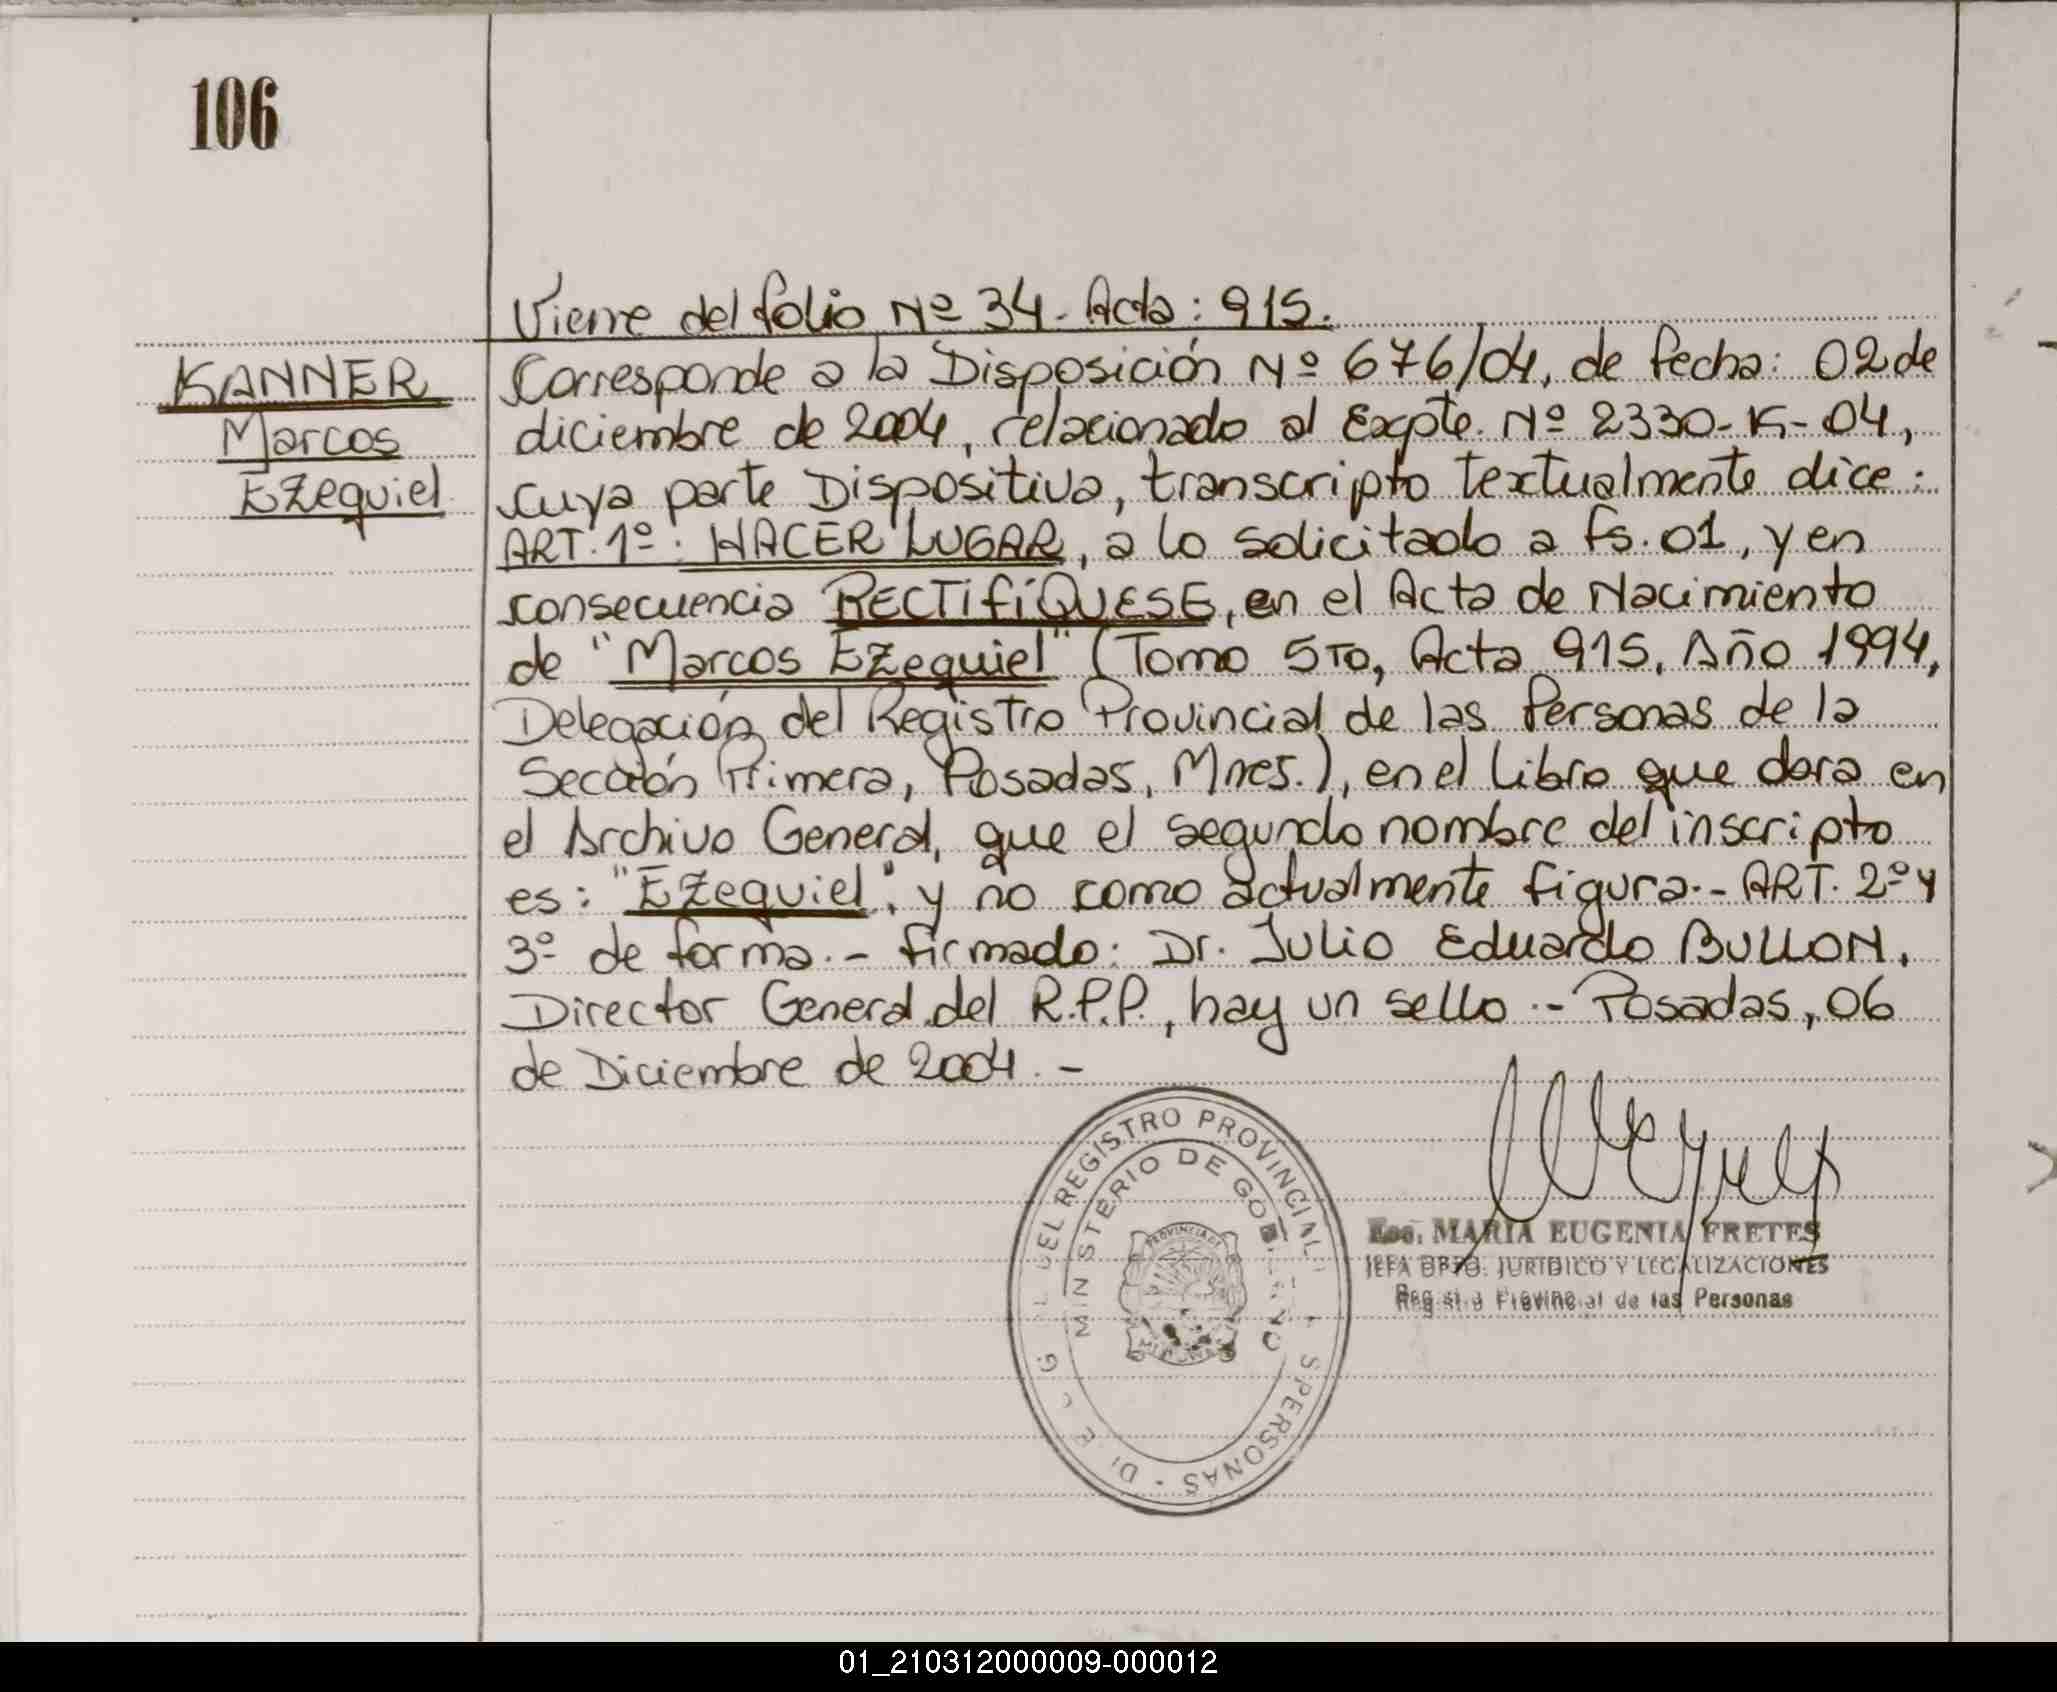 106
Viene del folio Nº 34. Acta: 915.
KANNER
Marcos
Ezequiel
Corresponde a la Disposición Nº 676/04, de fecha: 02 de
diciembre de 2004, relacionado al Expte. Nº 2330-K-04,
cuya parte Dispositiva, transcripto textualmente dice:
ART. 1º: HACER LUGAR, a lo solicitado a fs. 01, y en
consecuencia RECTIFÍQUESE, en el Acta de Nacimiento
de "Marcos Ezequiel" (Tomo 5TO, Acta 915, Año 1994,
Delegación del Registro Provincial de las Personas de la
Sección Primera, Posadas, Mnes.), en el libro que obra en
el Archivo General, que el segundo nombre del inscripto
es: "Ezequiel", y no como actualmente figura.- ART. 2º y
3º de forma.- firmado: Dr. Julio Eduardo BULLON.
Director General del R.P.P., hay un sello.- Posadas, 06
de Diciembre de 2004.-
DEL REGISTRO PROVINCIAL
PERSONAS
MINISTERIO DE GOBIERNO
PROVINCIA DE
MISIONES
Esc. MARIA EUGENIA FRETES
JEFA DPTO. JURIDICO Y LEGALIZACIONES
Registro Provincial de las Personas
01_210312000009-000012